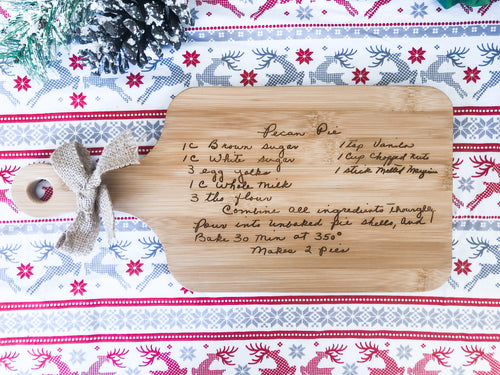 Pecan Pie
1 C Brown sugar
1 C White sugar
3 egg yolks
1 C Whole Milk
3 tbs flour
1 tsp Vanilla
1 Cup Chopped nuts
1 stick Melted Margine
Combine all ingredients thourghly
Pour into unbaked pie shells, and
Bake 30 Min at 350°
Makes 2 Pies